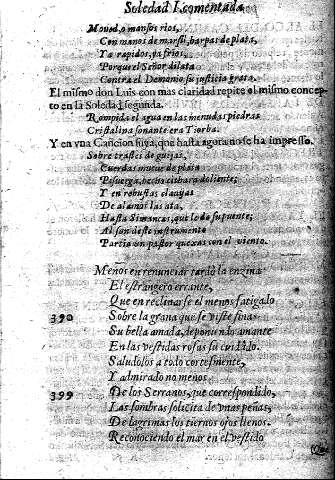 Soledad I. comentada
Moued, o mansos rios,
Con manos de marfil, harpas de plata,
Ya rapidos, ya frios,
Porque el Señor dilata
Contra el Demonio su justicia grata.
El mismo don Luis con mas claridad repite el mismo concep-
to en la Soledad segunda.
Rompida el agua en las menudas piedras
Cristalina sonante era Tiorba.
Y en vna Cancion suya, que hasta agora no se ha impresso.
Sobre trastes de guijas,
Cuerdas mueue de plata
Pisuerga, hecha cithara doliente;
Y en robustas clauijas
De alamos las ata,
Hasta Simancas, que le da su puente;
Al son deste instrumento
Partia vn pastor quexas con el viento.
Menos en renunciar tardò la enzina
El estrangero errante,
Que en reclinarse el menos fatigado
390 Sobre la grana que se viste fina
Su bella amada, deponiendo amante
En las vestidas rosas su cuidado.
Saludolos a todos cortesmente,
Y admirado no menos
399 De los Serranos, que correspondido,
Las sombras solicita de vnas peñas,
De lagrimas los tiernos ojos llenos.
Reconociendo el mar en el vestido